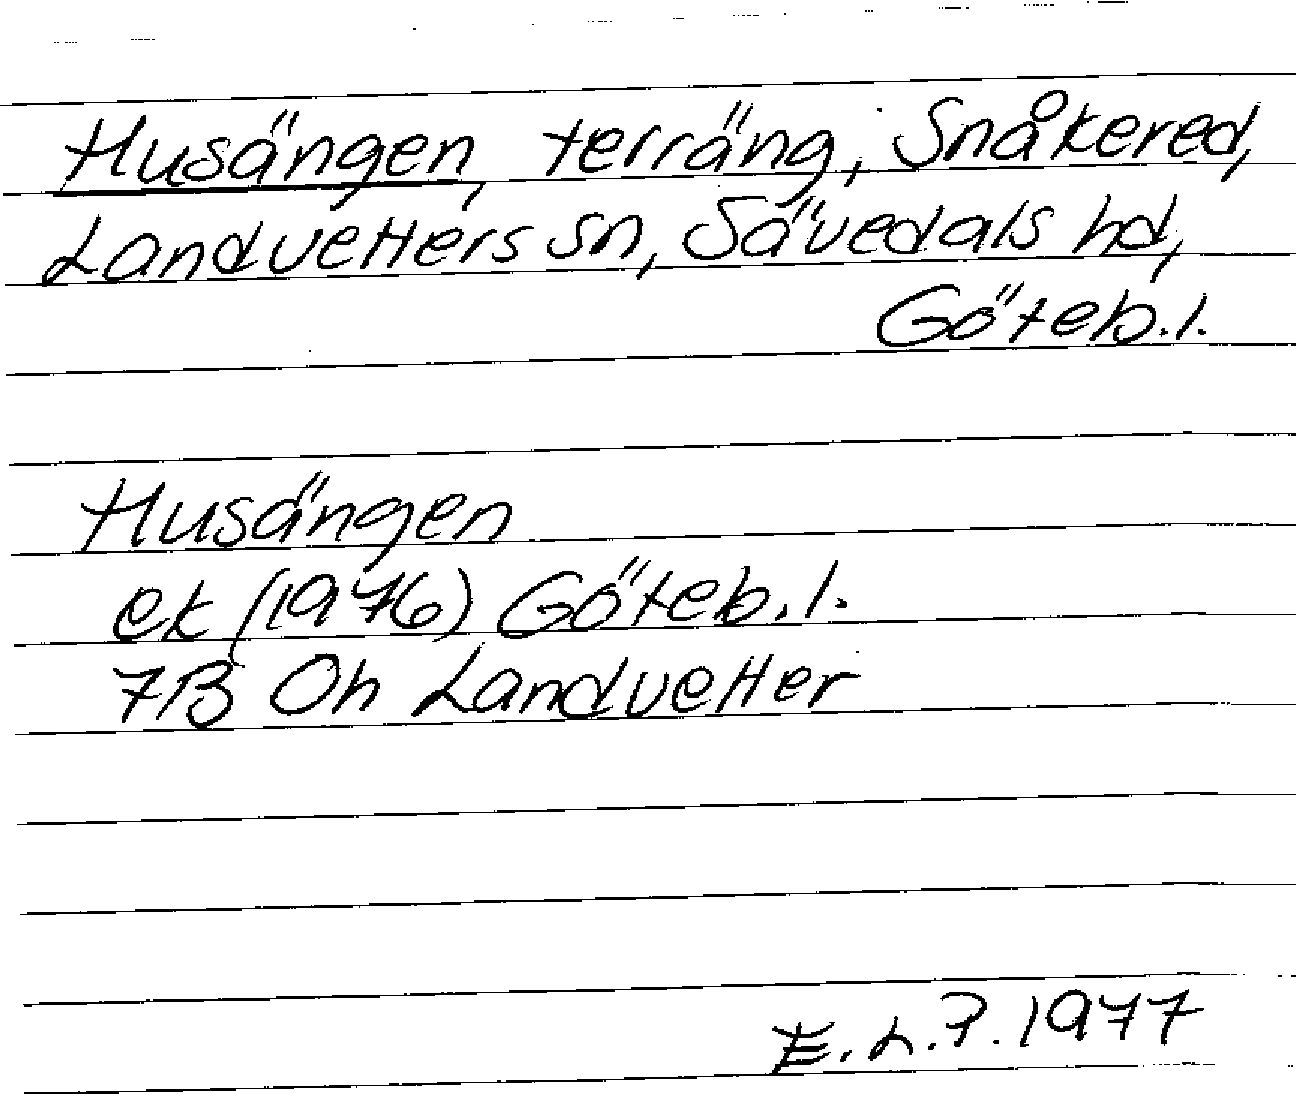 Husängen, terräng, Snåkered,
Landvetters sn, Sävedals hd,
Göteb.l.
Husängen
ek (1976) Göteb.l.
7B Oh Landvetter
E.L.P. 1977